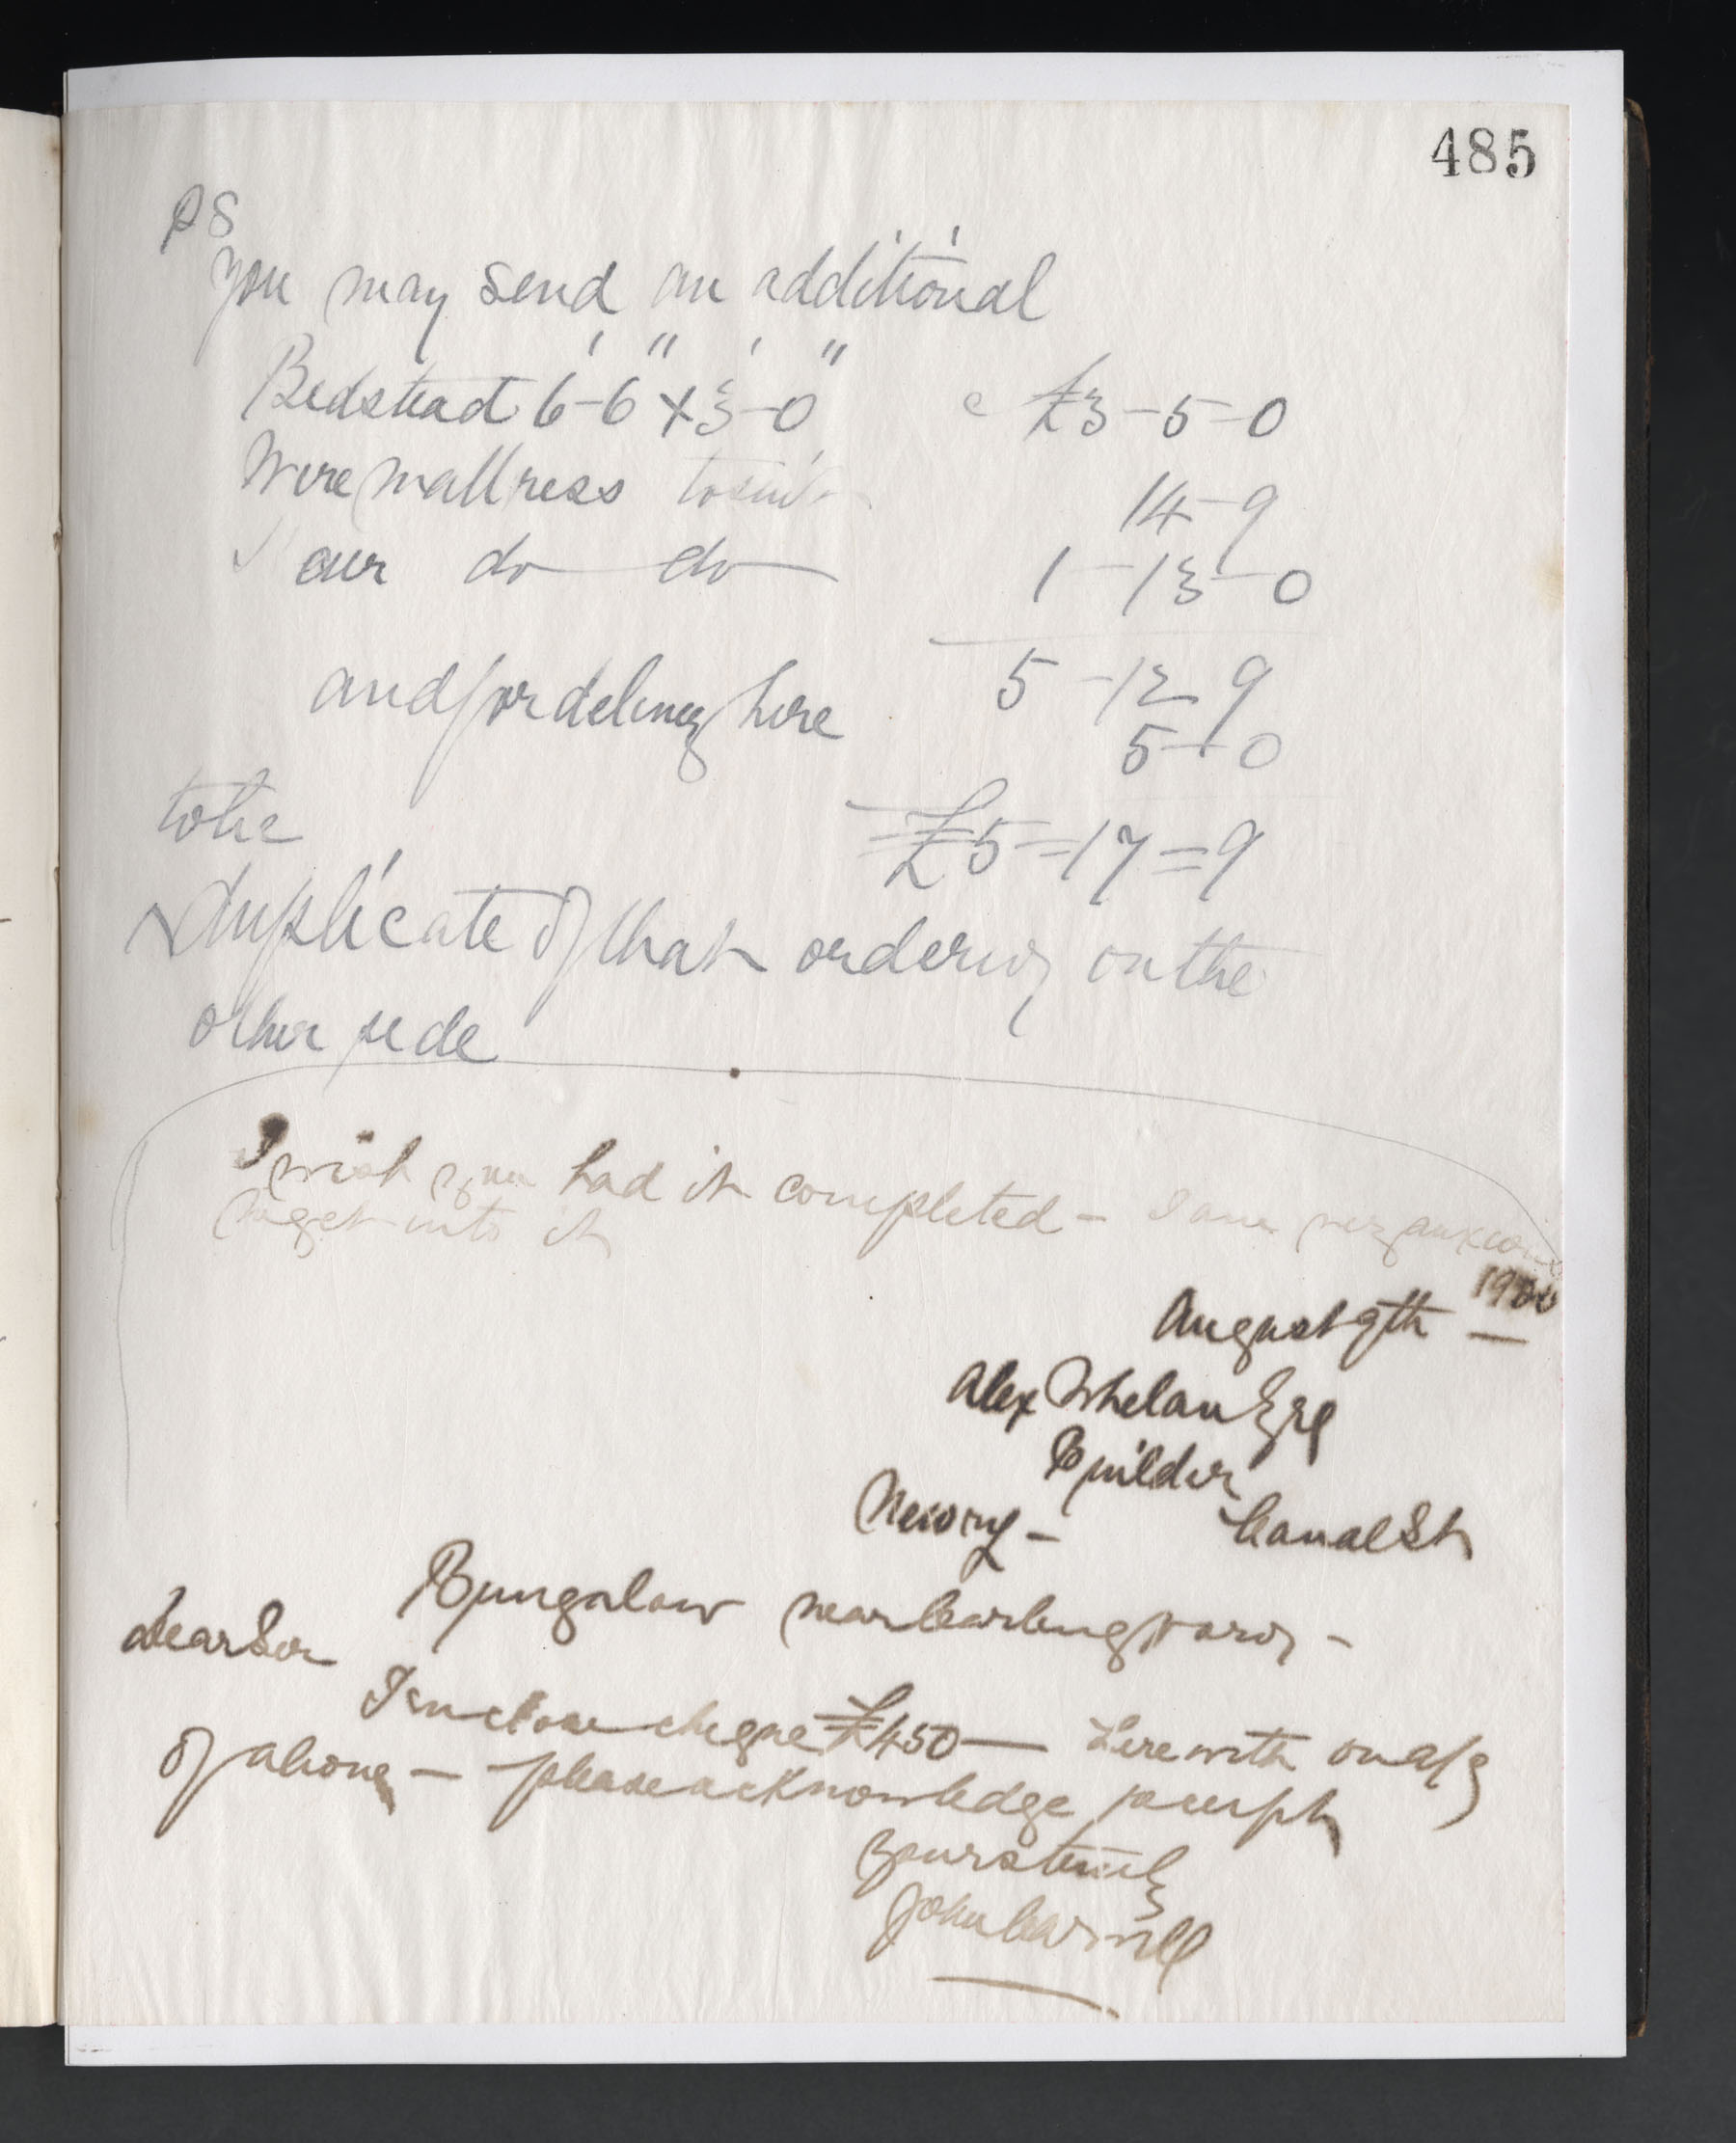 485
PS
you may send an additional
Bedstead 6'-6" x 3'-0" @ £3-5-0
Wire mattress to suit 14-9
Hair do do 1-13-0
5-12-9
and for delivery here 5-0
to be £5=17=9
duplicate of that ordering on the
other side
I wish you had it completed - I am very anxious
to get into it
August 9th 1900
Alex Whelan Esq
Builder
Newry - Canal St
Bungalow near Carlingford -
Dear Sir
I enclose cheque £450 — herewith on a/c
of above - please acknowledge receipt
yours truly
John Carvill